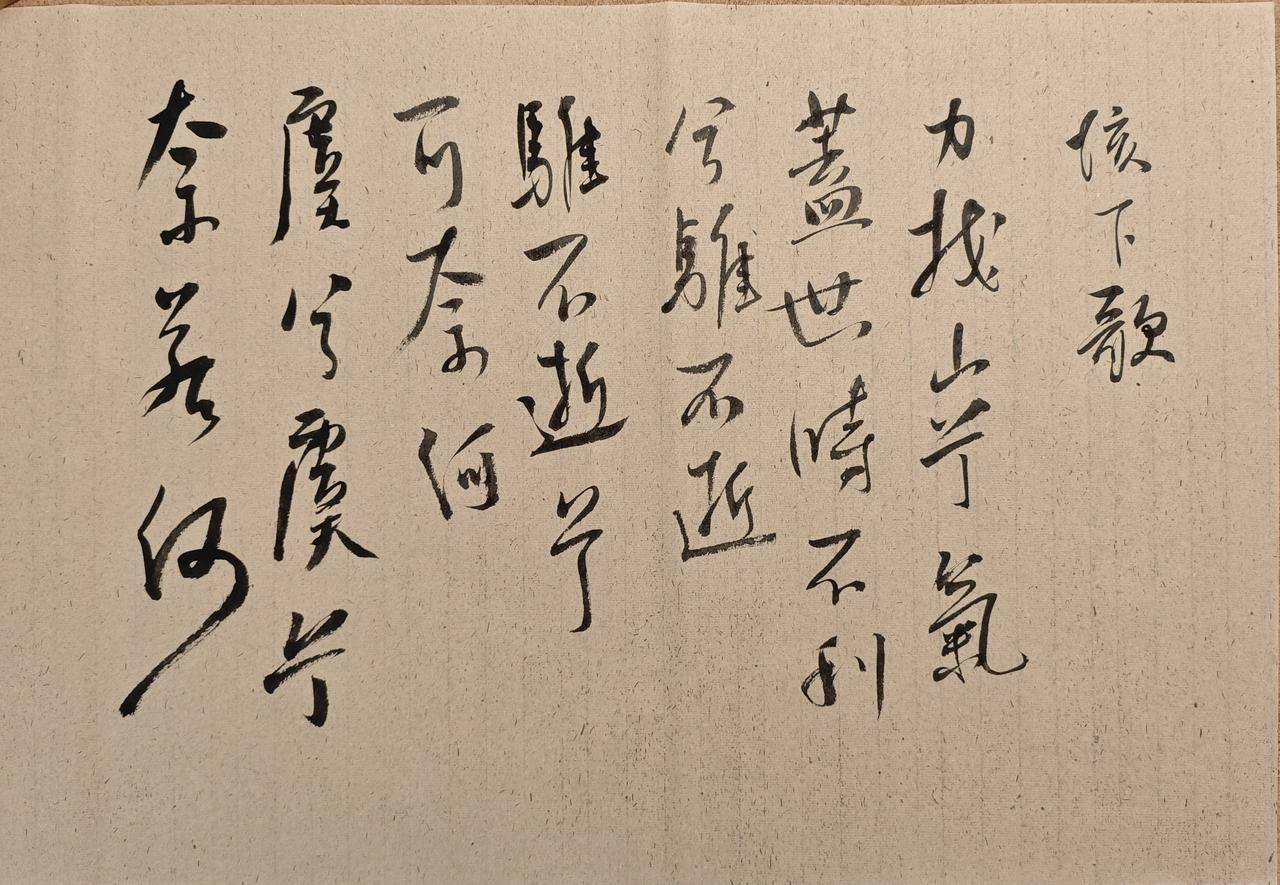 垓下歌
力拔山兮氣
蓋世時不利
兮騅不逝
騅不逝兮
可奈何
虞兮虞兮
奈若何